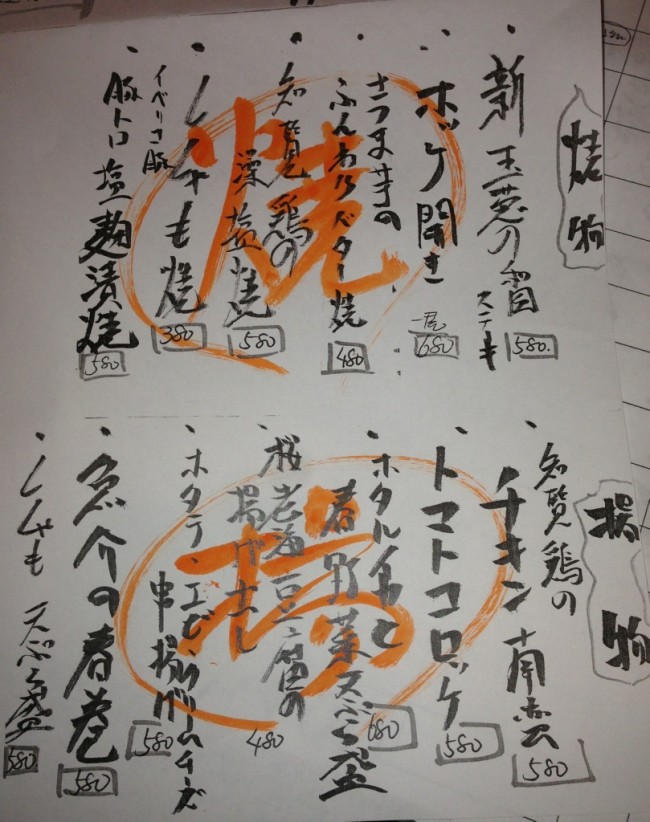 焼物
新玉葱の醤
ステーキ
580.
ホッケ開き
一尾
680
さつま芋の
ふんわりバター焼
480
知覧鶏の
藻塩焼
580
ししゃも焼
380
イベリコ豚
豚トロ塩麹漬焼
580
焼
揚物
知覧鶏の
チキン南蛮
580
トマトコロッケ
580
ホタルイカと
春野菜天ぷら盛
680
桜老海豆腐の
揚げ出し
480
ホタテ、エビ、クリームチーズ
串揚げ
580
の春巻
580
ししゃも天ぷら盛
580
揚